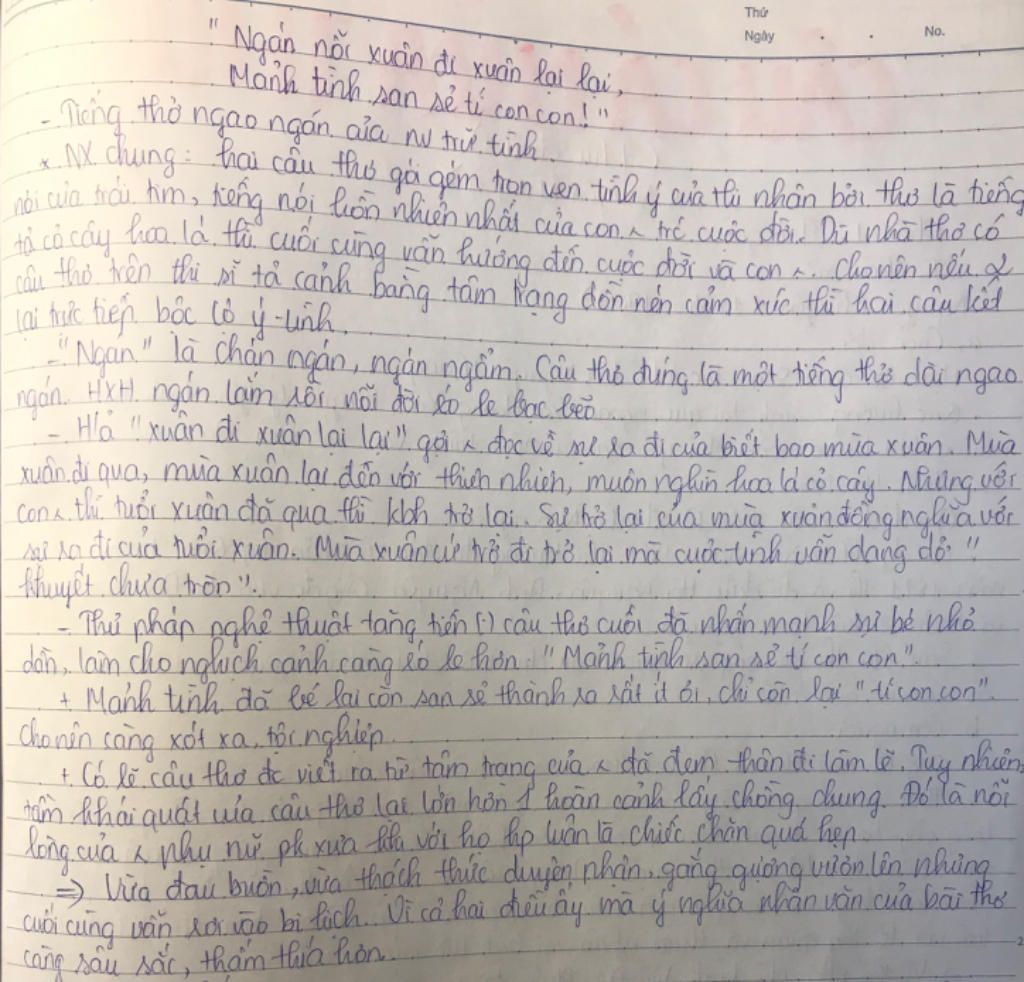 Thứ
Ngày . . No.
" Ngán nỗi xuân đi xuân lại lại,
Mảnh tình san sẻ tí con con! "
- Tiếng thở ngao ngán của nv trữ tình.
* NX chung: hai câu thơ gói gém trọn vẹn tình ý của thi nhân bởi thơ là tiếng
nói của trái tim, tiếng nói hồn nhiên nhất của con ʌ trc cuộc đời. Dù nhà thơ có
tả cỏ cây hoa lá thì cuối cùng vẫn hướng đến cuộc đời và con ʌ. Cho nên nếu 2
câu thơ trên thi sĩ tả cảnh bằng tâm trạng dồn nén cảm xúc thì hai câu kết
lại trực tiếp bộc lộ ý-tình.
- "Ngán" là chán ngán, ngán ngẩm. Câu thơ đúng là một tiếng thở dài ngao
ngán. HXH ngán lắm rồi nỗi đời éo le bạc bẽo
- H/ả "xuân đi xuân lại lại" gợi ʌ đọc về sự ra đi của biết bao mùa xuân. Mùa
xuân đi qua, mùa xuân lại đến với thiên nhiên, muôn nghìn hoa lá cỏ cây. Nhưng với
con ʌ thì tuổi xuân đã qua thì kbh trở lại. Sự trở lại của mùa xuân đồng nghĩa với
sự ra đi của tuổi xuân. Mùa xuân cứ trở đi trở lại mà cuộc tình vẫn dang dở "
khuyết chưa tròn".
- Thủ pháp nghệ thuật tăng tiến (.) câu thơ cuối đã nhấn mạnh sự bé nhỏ
dần, làm cho nghịch cảnh càng éo le hơn "Mảnh tình san sẻ tí con con".
+ Mảnh tình đã bé lại còn san sẻ thành ra rất ít ỏi, chỉ còn lại "tí con con".
Cho nên càng xót xa, tội nghiệp.
+ Có lẽ câu thơ đc viết ra từ tâm trạng của ʌ đã đem thân đi làm lẽ. Tuy nhiên,
tầm khái quát của câu thơ lại lớn hơn 1 hoàn cảnh lấy chồng chung. Đó là nỗi
lòng của ʌ phụ nữ pk xưa khi với họ hp luôn là chiếc chăn quá hẹp.
=> Vừa đau buồn, vừa thách thức duyên phận, gắng gượng vươn lên nhưng
cuối cùng vẫn rơi vào bi kịch. Vì cả hai điều ấy mà ý nghĩa nhân văn của bài thơ
càng sâu sắc, thấm thía hơn.